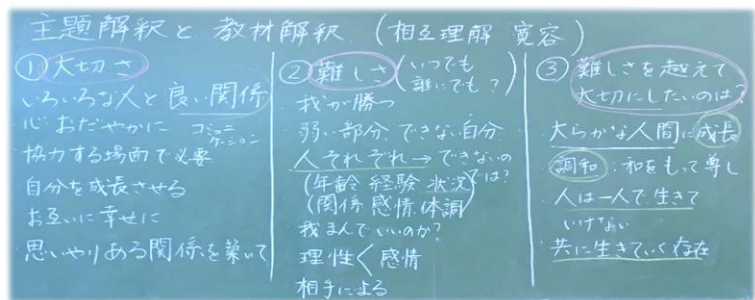 主題解釈と教材解釈 (相互理解 寛容)
① 大切さ
いろいろな人と良い関係
心おだやかに コミュニケーション
協力する場面で必要
自分を成長させる
お互いに幸せに
思いやりある関係を築いて
② 難しさ (いつでも 誰にでも?)
我が勝つ
弱い部分、できない自分
人それぞれ→できないのでは?
(年齢 経験 状況)
(関係 感情 体調)
我まんでいいのか?
理性<感情
相手による
③ 難しさを越えて
大切にしたいのは?
大らかな人間に成長
調和:和をもって尊し
人は一人で生きて
いけない
共に生きていく存在